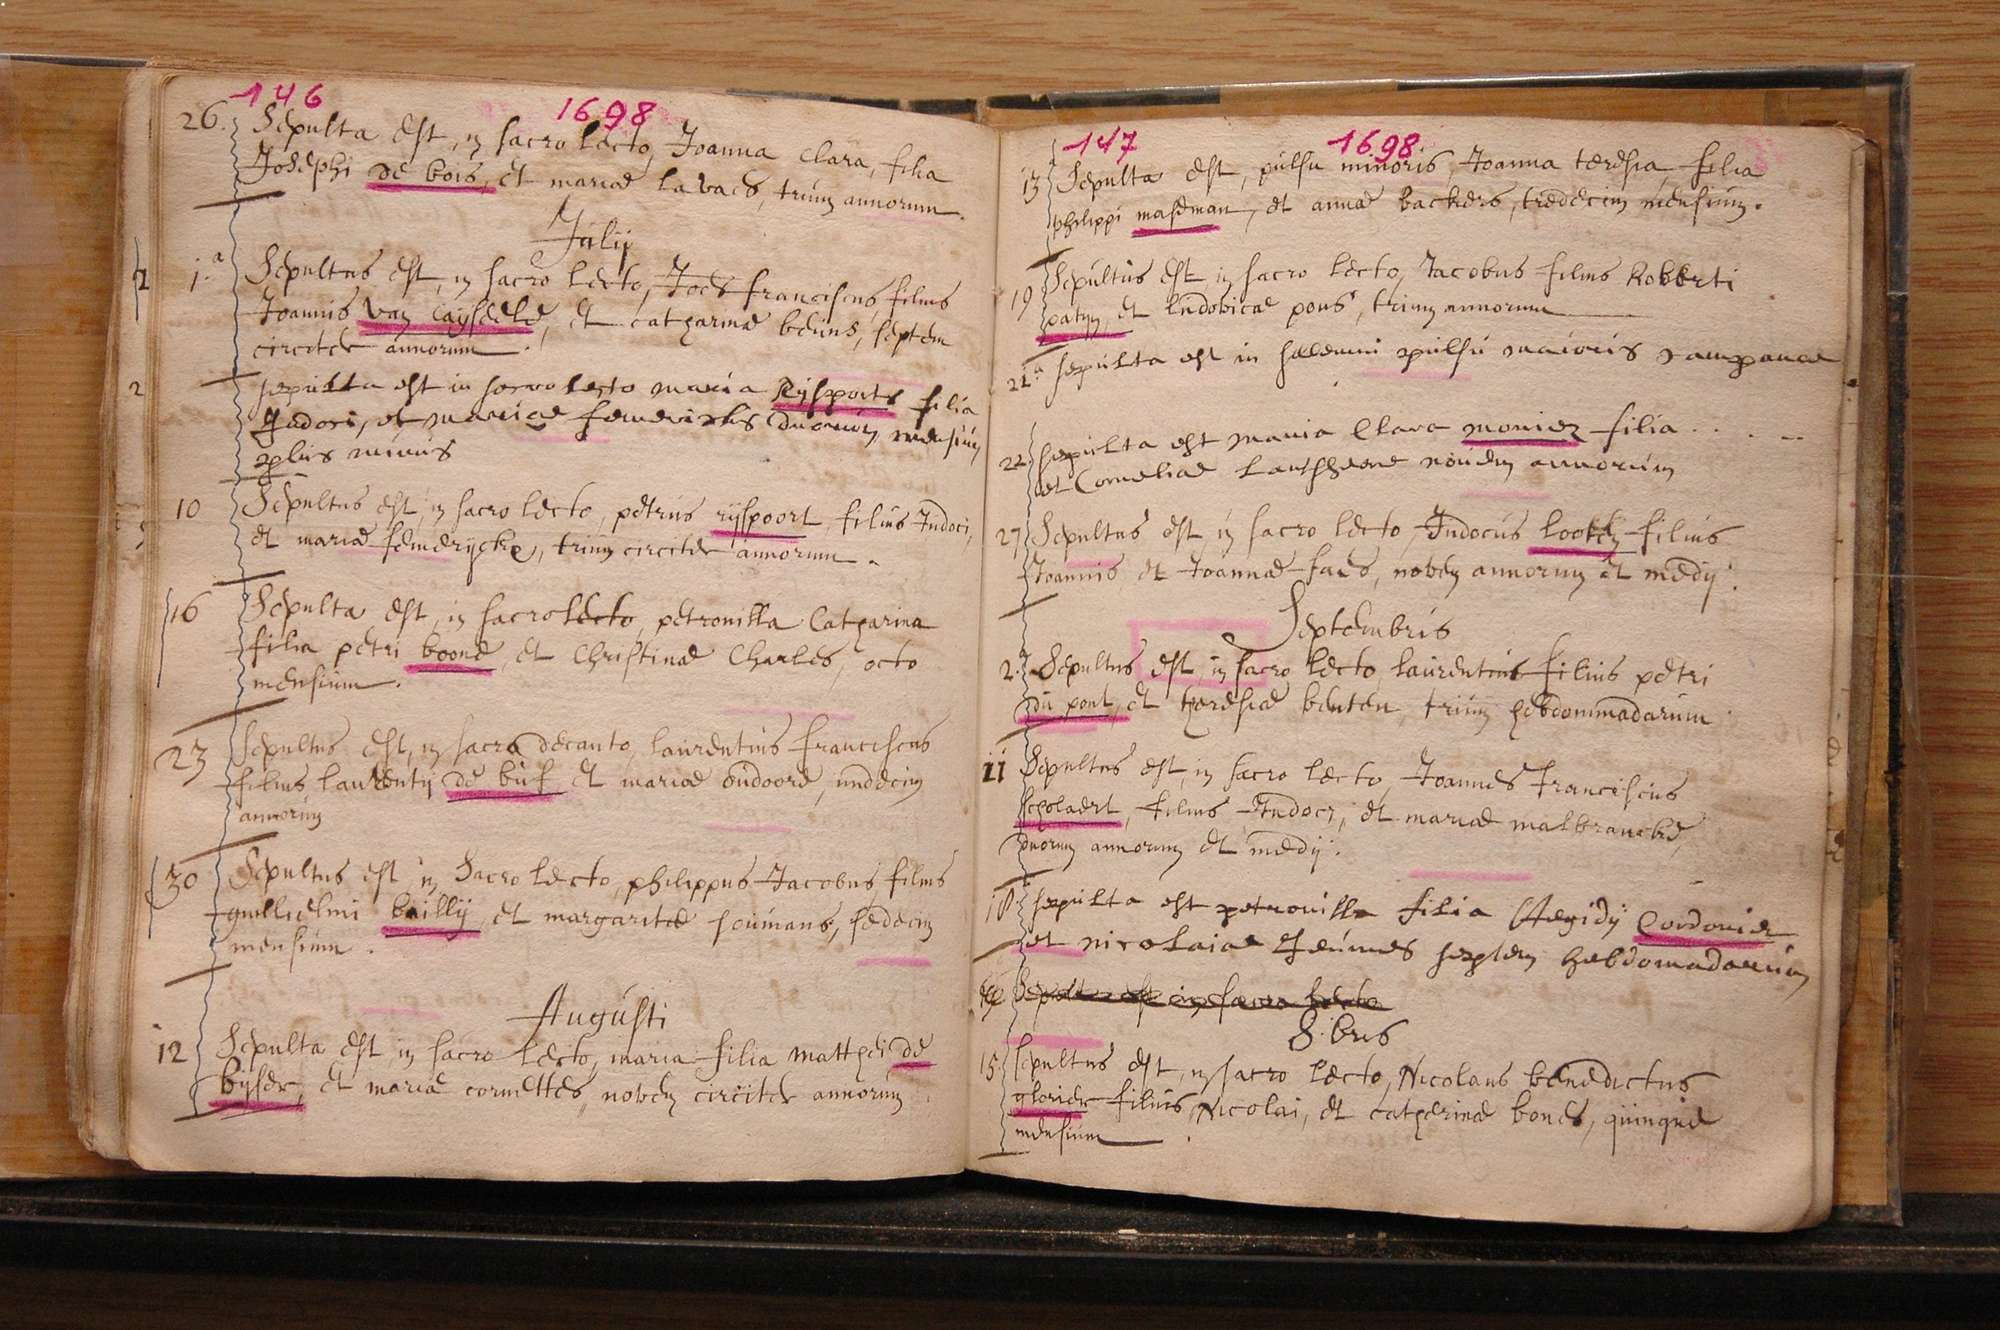 146
1698
26. Sepulta est, in sacro lecto, Joanna Clara, filia
Josephi de bois, et mariæ lavaes, trium annorum.
Julij
1.a Sepultus est, in sacro lecto, Joes franciscus, filius
Joannis van Cayseele, et catharinæ beuns, septem
circiter annorum.
2 sepulta est in sacro lecto maria Rijspoorts filia
Judoci, et mariae femerickx duorum mensium
plus minus
10 Sepultus est, in sacro lecto, petrus rijspoort, filius Judoci,
et mariæ femerijckx, trium circiter annorum.
16 Sepulta est, in sacro lecto, petronilla Catharina
filia petri boone, et Christinæ Charles, octo
mensium.
23 Sepultus est, in sacro decanto, laurentius franciscus
filius laurentij de buf et mariæ oudoore, undecim
annorum
30 Sepultus est in Sacro lecto, philippus Jacobus, filius
guillielmi bailly, et margaritæ soumans, sedecim
mensium.
Augusti
12 Sepulta est in sacro lecto, maria filia matthæi de
bijser, et mariæ cornettes, novem circiter annorum.
147
1698
13 Sepulta est, pulsu minoris, Joanna teresia filia
philippi maseman, et annæ backers, tredecim mensium.
19 Sepultus est, in sacro lecto, Jacobus filius Robberti
patyn, et ludovicæ pons, trium annorum
21.a sepulta est in solemni pulsu maioris campanae
22. sepulta est maria Clara monier filia . . . . ..
et Corneliae Lansheere novem annorum
27 Sepultus est, in sacro lecto, Judocus looten filius
Joannis et Joannæ faes, novem annorum et medij.
Septembris
2. Sepultus est, in sacro lecto, laurentius filius petri
du pont, et theresiæ benten, trium hebdommadarum
11 Sepultus est, in sacro lecto, Joannes franciscus
scholaert, filius Judoci, et mariæ malbrancke,
duorum annorum et medij.
18. sepulta est petronilla filia Aegidij Cordonier
et nicolaiae theunes septem hebdomadarum
Sepultus est in sacro lecto
8.bris
15. sepultus est, in sacro lecto, Nicolaus benedictus
glorier filius Nicolai, et catherinæ bones, quinque
mensium